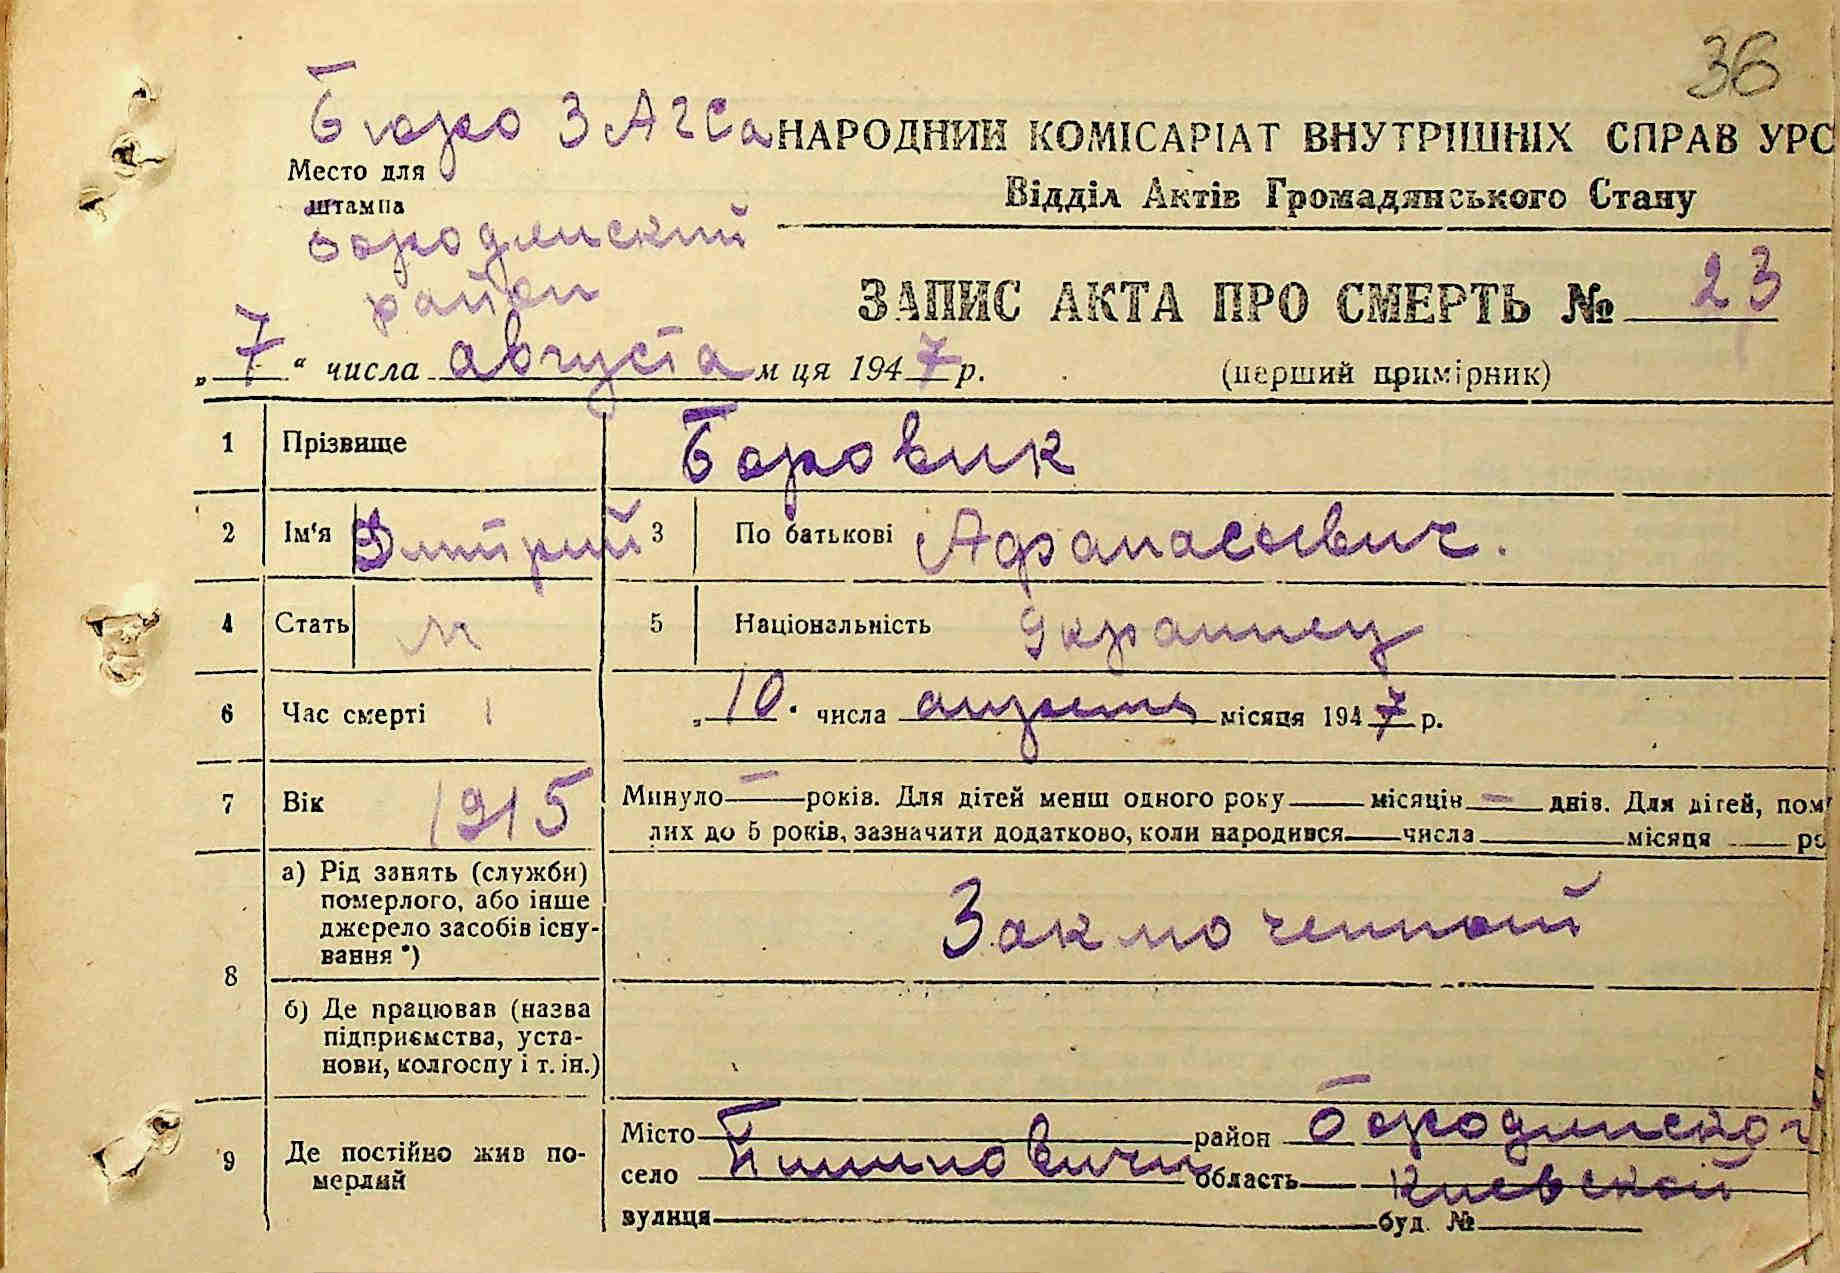 36
Бюро ЗАГСа НАРОДНИЙ КОМІСАРІАТ ВНУТРІШНІХ СПРАВ УРС
Место для
штампа
Відділ Актів Громадянського Стану
Бородянский
район
ЗАПИС АКТА ПРО СМЕРТЬ № 23
„7“ числа августа м ця 1947 р. (перший примірник)
1 Прізвище Боровик
2 Ім'я Дмитрий 3 По батькові Афанасьевич.
4 Стать м 5 Національність Украинец
6 Час смерті „10" числа апреля місяця 1947 р.
7 Вік 1915 Минуло — років. Для дітей менш одного року — місяців — днів. Для дітей, пом
лих до 5 років, зазначити додатково, коли народився — числа — місяця — ро
8 а) Рід занять (служби)
померлого, або інше
джерело засобів існу-
вання *)
Заключенный
б) Де працював (назва
підприємства, уста-
нови, колгоспу і т. ін.)
9 Де постійно жив по-
мерлий
Місто район Бородянской
село область Киевской
вулиця буд. №